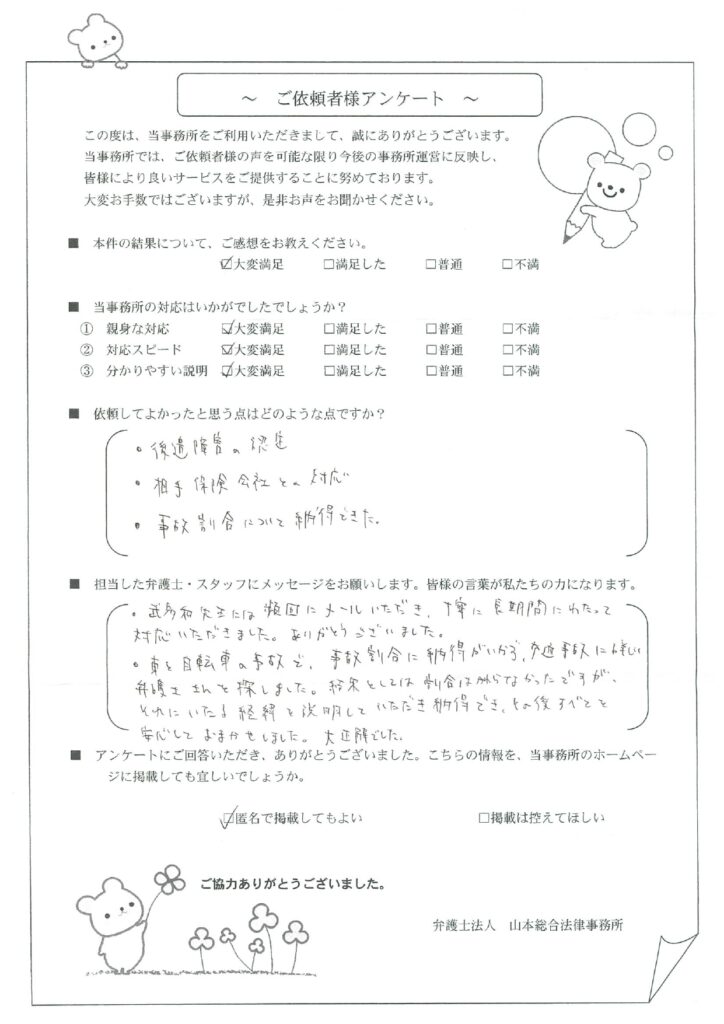 ～ ご依頼者様アンケート ～
この度は、当事務所をご利用いただきまして、誠にありがとうございます。
当事務所では、ご依頼者様の声を可能な限り今後の事務所運営に反映し、
皆様により良いサービスをご提供することに努めております。
大変お手数ではございますが、是非お声をお聞かせください。
■ 本件の結果について、ご感想をお教えください。
☑大変満足 □満足した □普通 □不満
■ 当事務所の対応はいかがでしたでしょうか？
① 親身な対応 ☑大変満足 □満足した □普通 □不満
② 対応スピード ☑大変満足 □満足した □普通 □不満
③ 分かりやすい説明 ☑大変満足 □満足した □普通 □不満
■ 依頼してよかったと思う点はどのような点ですか？
・後遺障害の認定
・相手保険会社との対応
・事故割合について納得できた。
■ 担当した弁護士・スタッフにメッセージをお願いします。皆様の言葉が私たちの力になります。
・先生には頻回にメールいただき、丁寧に長期間にわたって
対応いただきました。ありがとうございました。
・車と自転車の事故で、事故割合に納得がいかず、交通事故に強い
弁護士さんを探しました。結果としては割合は変わらなかったですが、
それにいたる経緯を説明していただき納得でき、その後すべてを
安心しておまかせしました。大正解でした。
■ アンケートにご回答いただき、ありがとうございました。こちらの情報を、当事務所のホームペー
ジに掲載しても宜しいでしょうか。
☑匿名で掲載してもよい □掲載は控えてほしい
ご協力ありがとうございました。
弁護士法人 山本総合法律事務所